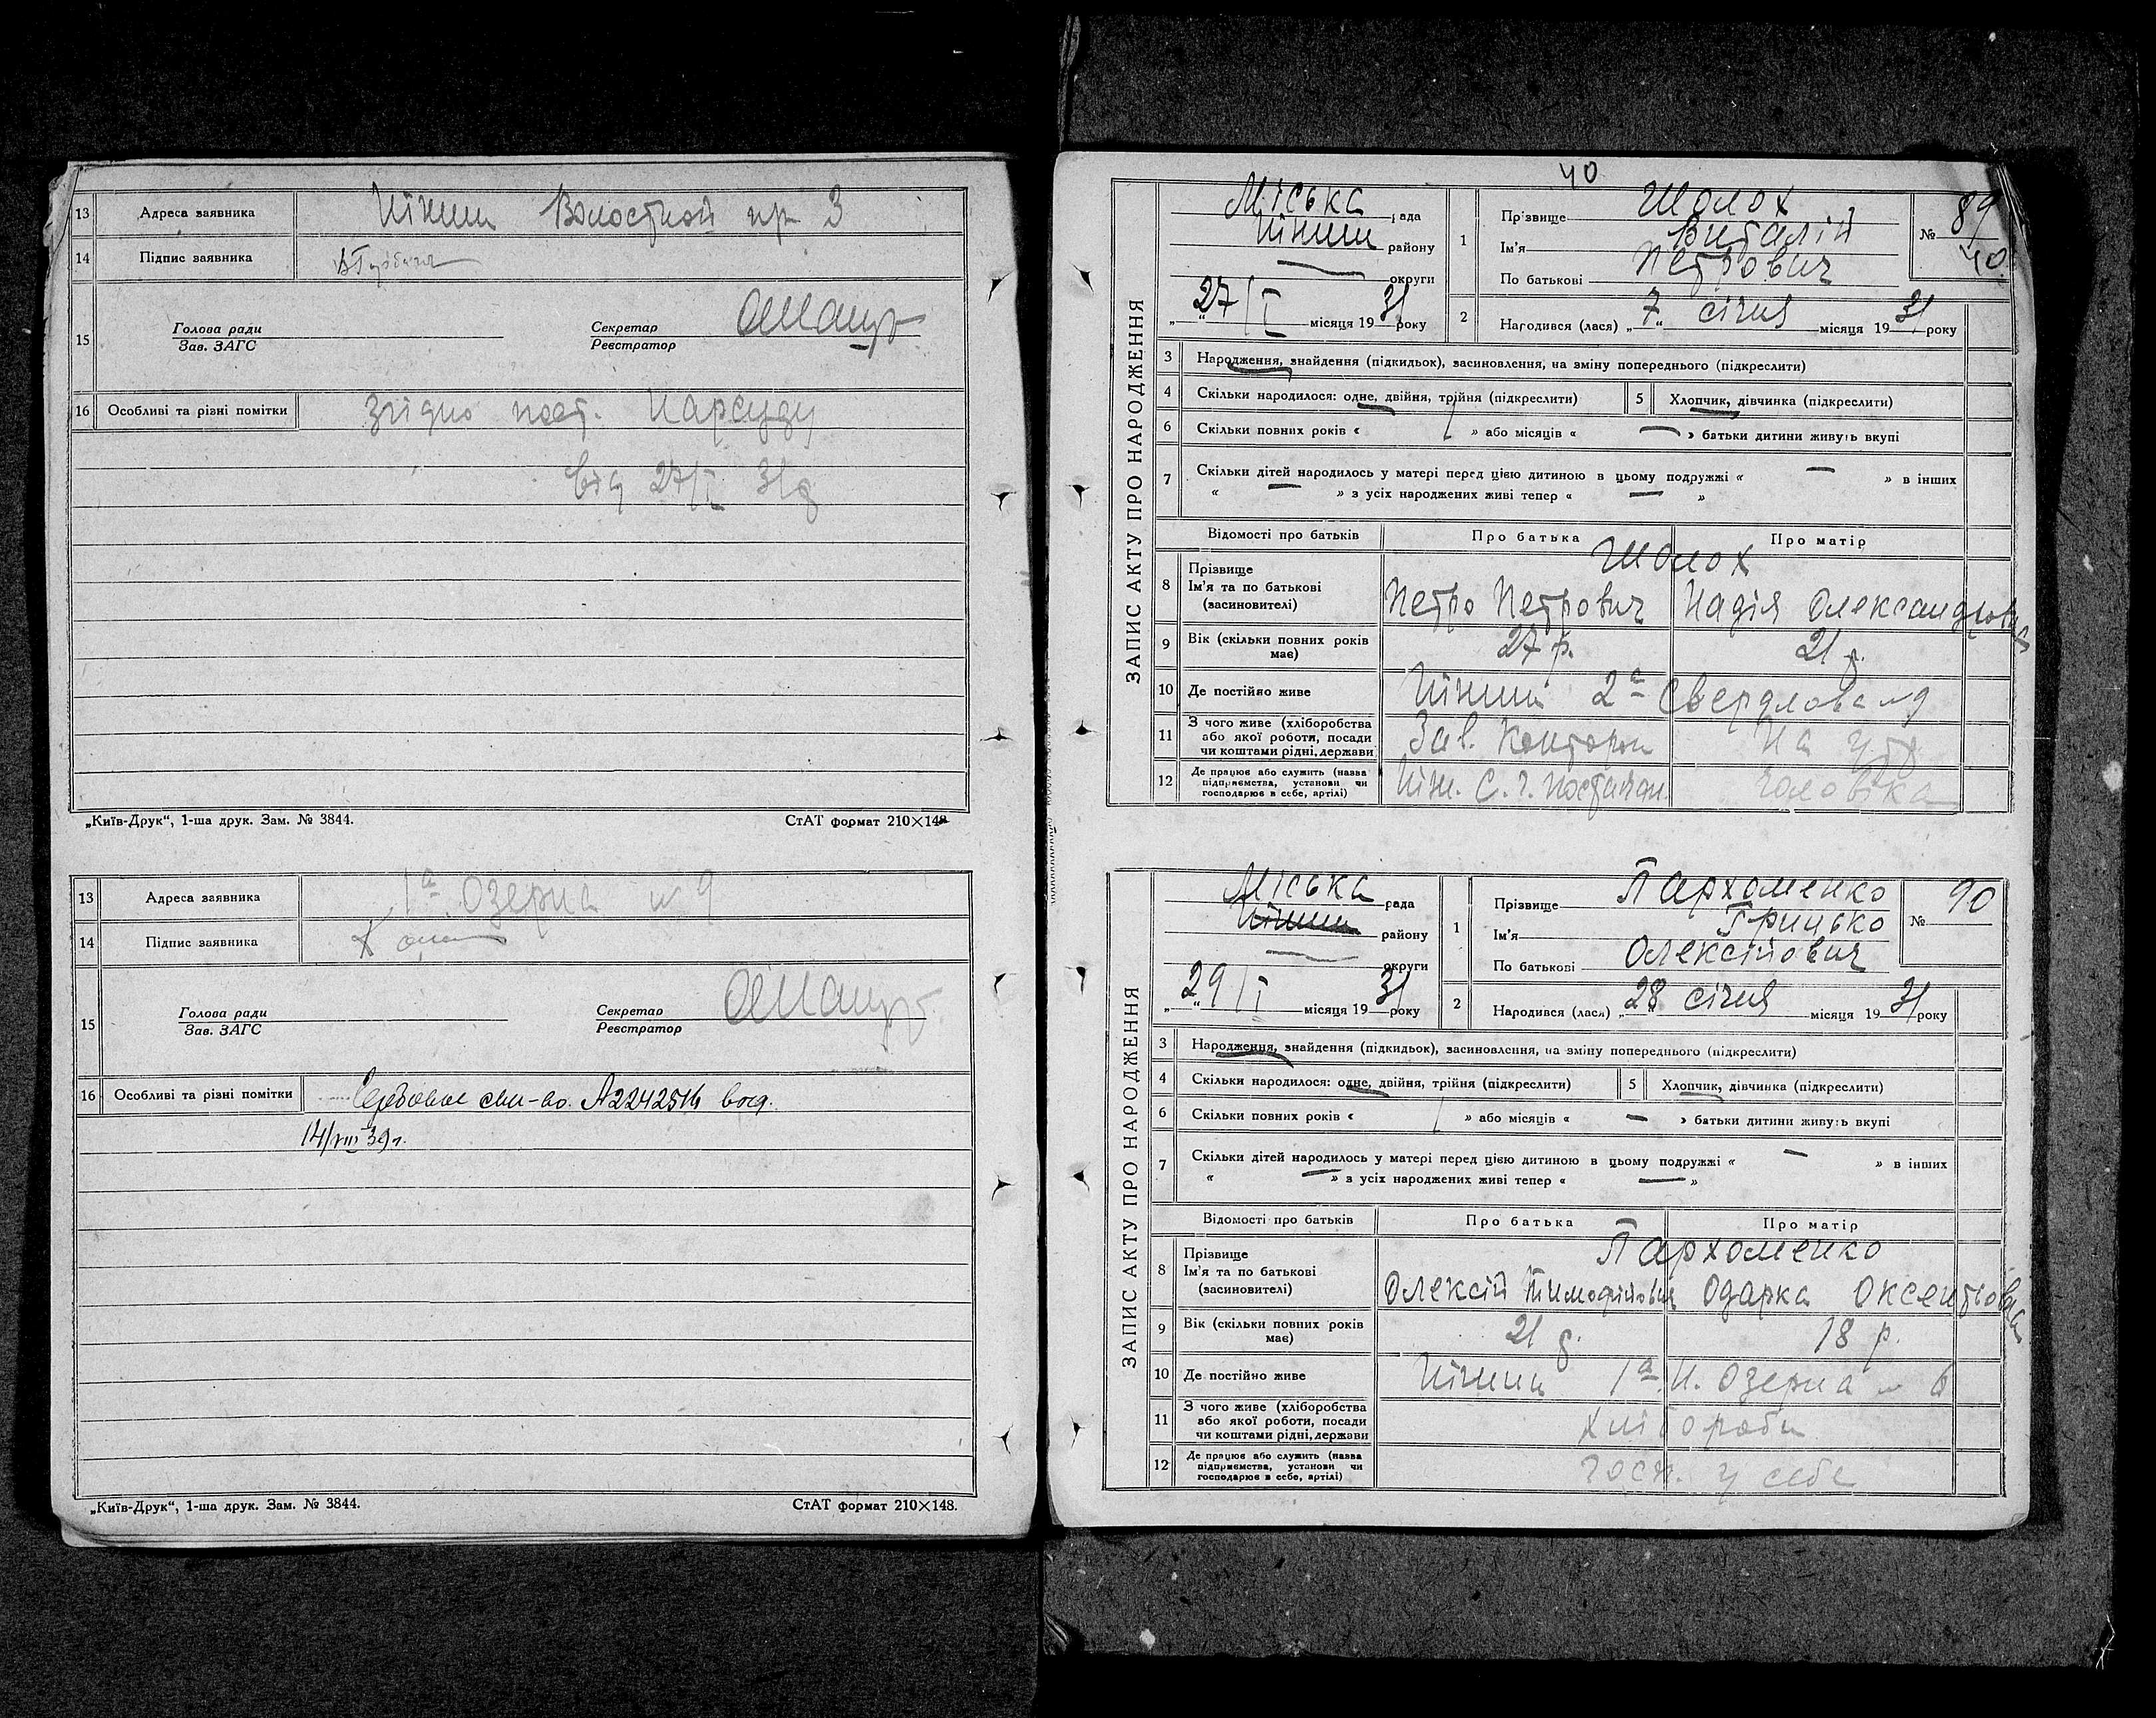 13 Адреса заявника Ніжин
14 Підпис заявника
15 Голова ради
Зав. ЗАГС
Секретар
Реєстратор
16 Особливі та різні помітки Згідно пост. Нарсуду
від 27/I 31 р
„Київ-Друк“, 1-ша друк. Зам. № 3844. СтАТ формат 210×148.
13 Адреса заявника 1а Озерна № 9
14 Підпис заявника
15 Голова ради
Зав. ЗАГС
Секретар
Реєстратор
16 Особливі та різні помітки
14/VIII 39 г.
„Київ-Друк“, 1-ша друк. Зам. № 3844. СтАТ формат 210×148.
40
ЗАПИС АКТУ ПРО НАРОДЖЕННЯ
Міська рада
Ніжин району
округи
„27/I“ місяця 1931 року
1 Прізвище Шолох
Ім'я Виталій
По батькові Петрович
№ 89
40
2 Народився (лася) „7“ січня місяця 1931 року
3 Народження, знайдення (підкидьок), засиновлення, на зміну попереднього (підкреслити)
4 Скільки народилося: одне, двійня, трійня (підкреслити) 5 Хлопчик, дівчинка (підкреслити)
6 Скільки повних років « » або місяців « — » батьки дитини живуть вкупі
7 Скільки дітей народилось у матері перед цією дитиною в цьому подружжі « — » в інших
« — » з усіх народжених живі тепер « — »
Відомості про батьків Про батька Про матір
8 Прізвище Шолох
Ім'я та по батькові
(засиновителі) Петро Петрович Надія Олександровна
9 Вік (скільки повних років має) 27 р. 21 р.
10 Де постійно живе Ніжин 2а Свердлова № 9
11 З чого живе (хліборобства
або якої роботи, посади
чи коштами рідні, держави Зав. Контори На утр.
12 Де працює або служить (назва
підприємства, установи чи
господарює в себе, артілі) Ніж. С. г. Постачан. чоловіка
ЗАПИС АКТУ ПРО НАРОДЖЕННЯ
Міська рада
Ніжин району
округи
„29/I“ місяця 1931 року
1 Прізвище Пархоменко
Ім'я Грицько
По батькові Олексійович
№ 90
2 Народився (лася) „28“ січня місяця 1931 року
3 Народження, знайдення (підкидьок), засиновлення, на зміну попереднього (підкреслити)
4 Скільки народилося: одне, двійня, трійня (підкреслити) 5 Хлопчик, дівчинка (підкреслити)
6 Скільки повних років « » або місяців « — » батьки дитини живуть вкупі
7 Скільки дітей народилось у матері перед цією дитиною в цьому подружжі « — » в інших
« — » з усіх народжених живі тепер « — »
Відомості про батьків Про батька Про матір
8 Прізвище Пархоменко
Ім'я та по батькові
(засиновителі) Олексій Тимофійович Одарка Оксентіовна
9 Вік (скільки повних років має) 21 р. 18 р.
10 Де постійно живе Ніжин 1а Н. Озерна № 6
11 З чого живе (хліборобства
або якої роботи, посади
чи коштами рідні, держави хлібороби
12 Де працює або служить (назва
підприємства, установи чи
господарює в себе, артілі) госп. у себе